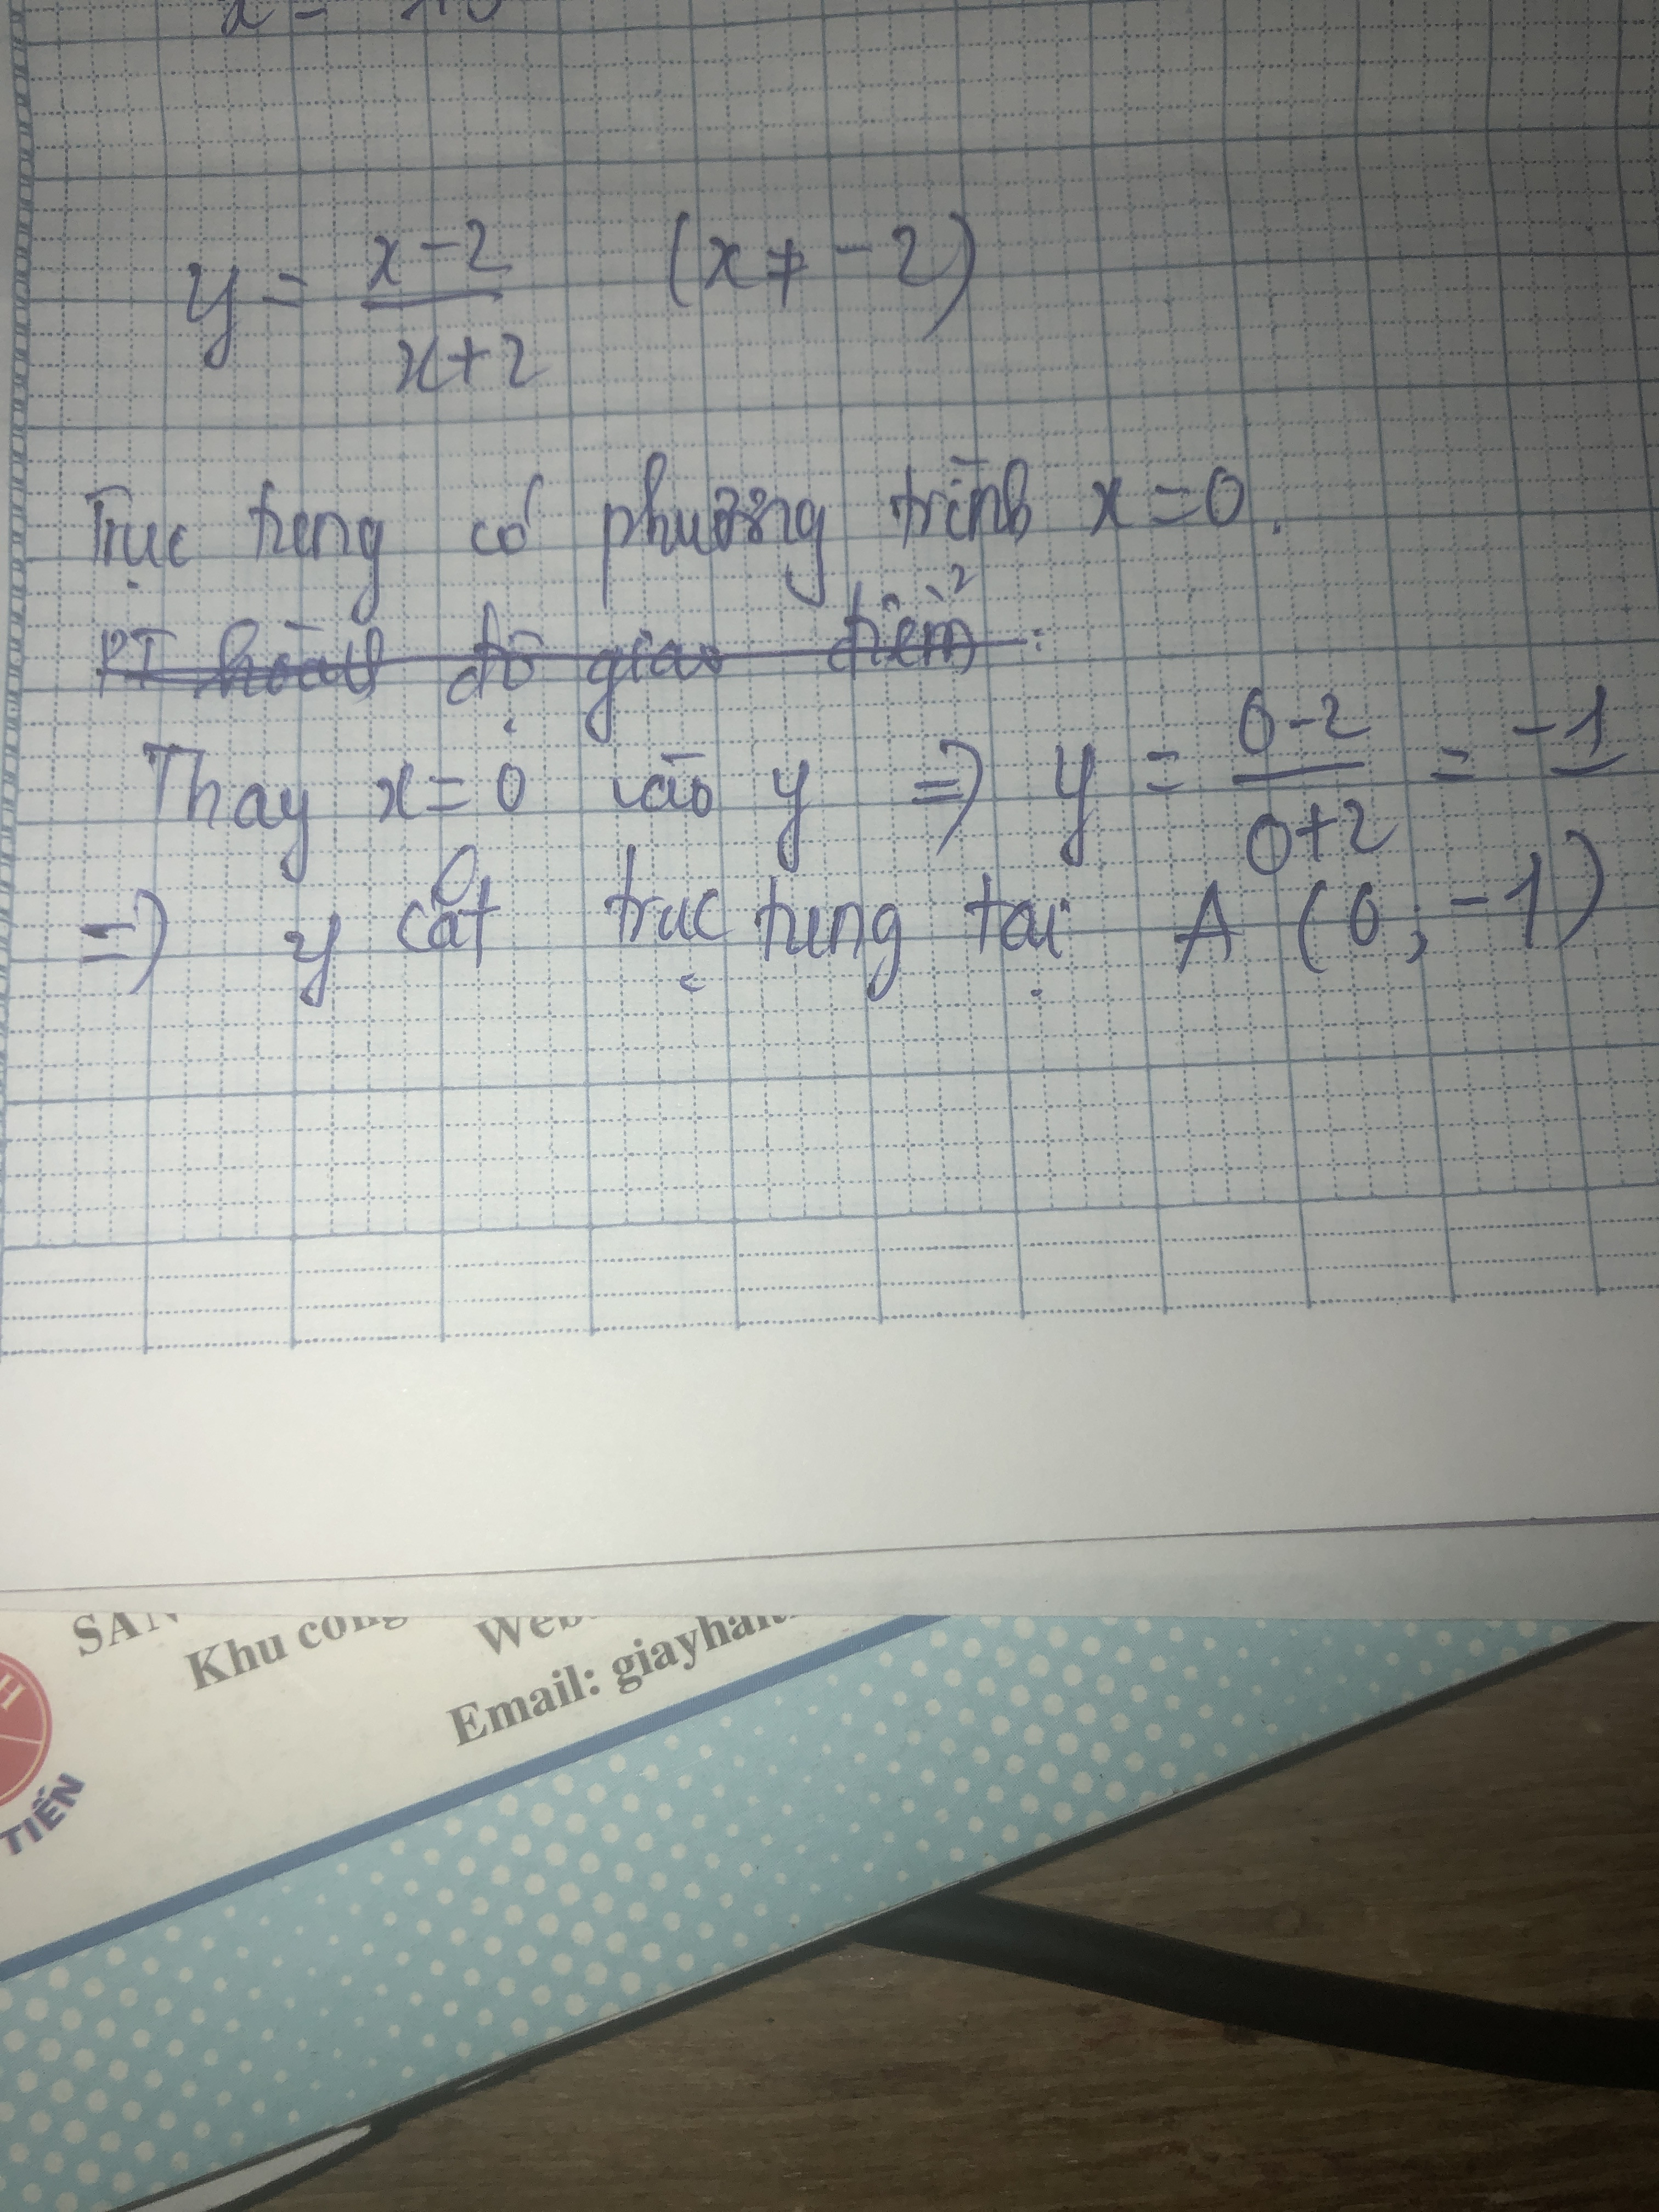 y = x-2 / x+2 (x ≠ -2)
Trục tung có phương trình x = 0.
PT hoành độ giao điểm:
Thay x = 0 vào y => y = 0-2 / 0+2 = -1
=> y cắt trục tung tại A (0; -1)
Khu công
Email: giayhait
TIẾN